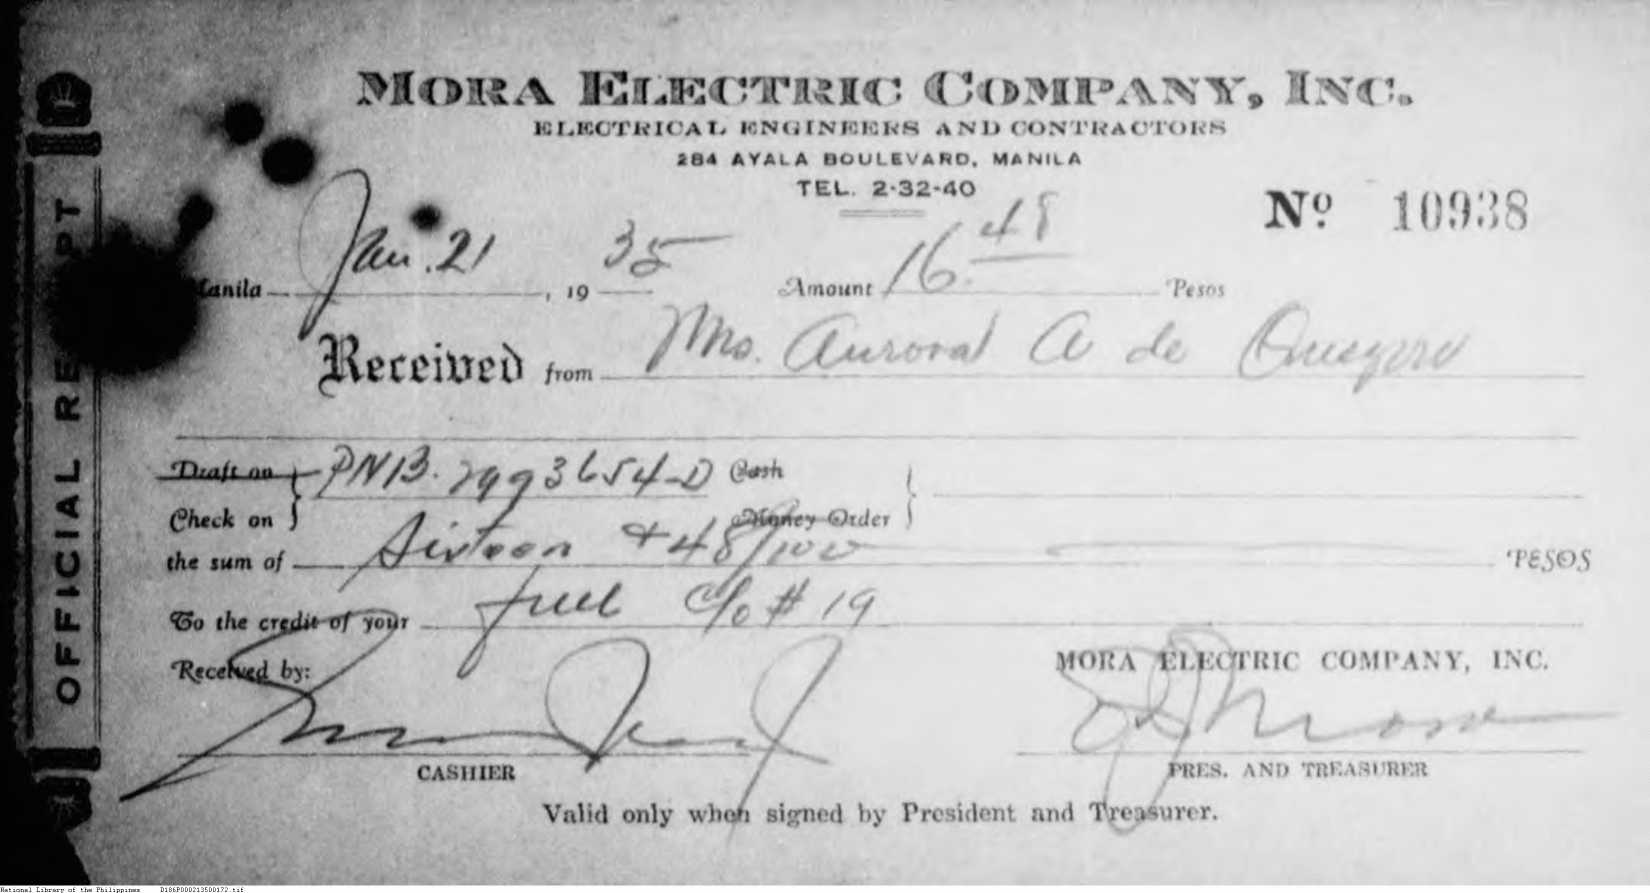 MORA ELECTRIC COMPANY, INC.
ELECTRICAL ENGINEERS AND CONTRACTORS
284 AYALA BOULEVARD, MANILA
TEL. 2-32-40
Nº 10938
OFFICIAL RE PT
Manila Jan. 21, 1935 Amount 16.48 Pesos
Received from Mrs. Aurora A de
Draft on PNB. 2993654-D Cash
Check on Money Order
the sum of Sixteen + 48/100 PESOS
To the credit of your full c/o # 19
Received by: MORA ELECTRIC COMPANY, INC.
CASHIER PRES. AND TREASURER
Valid only when signed by President and Treasurer.
National Library of the Philippines D186P000213500172.tif